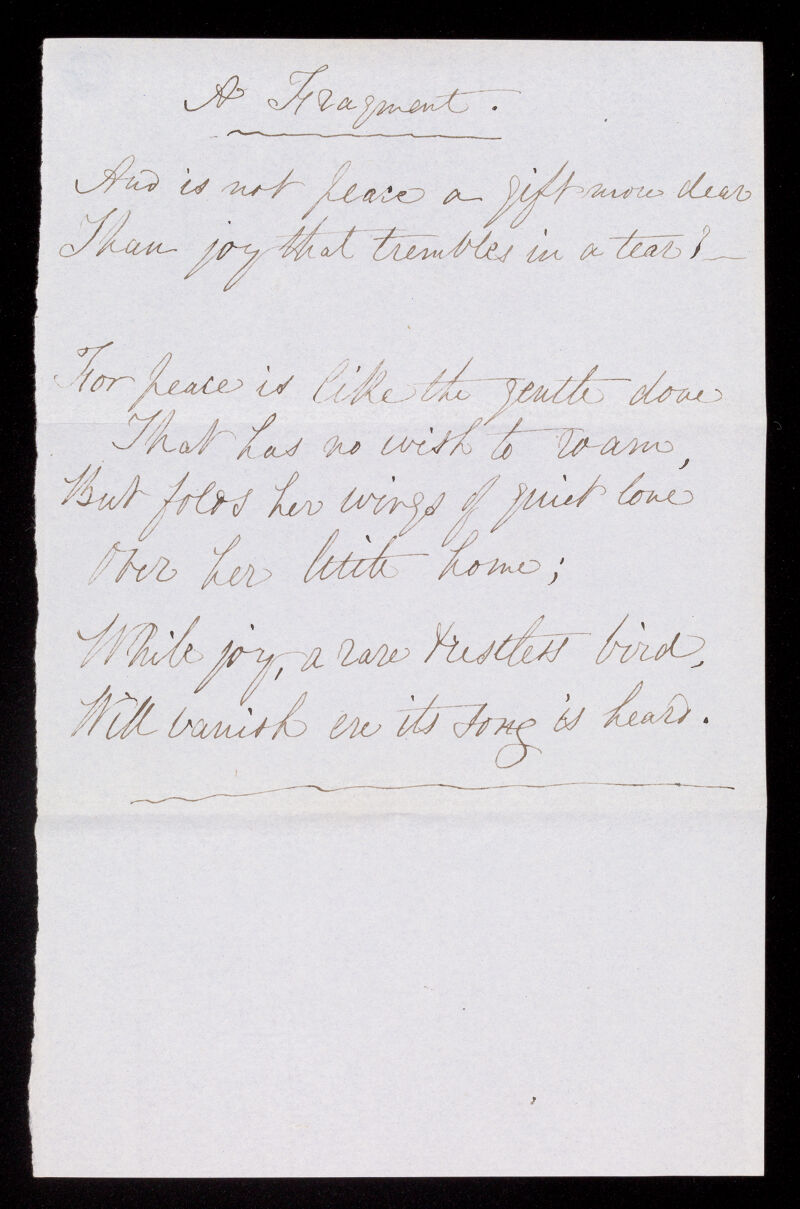 A Fragment.
And is not peace a gift more dear
Than joy that trembles in a tear? —
For peace is like the gentle dove
That has no wish to roam,
But folds her wings of quiet love
Over her little home;
While joy, a rare & restless bird,
Will vanish ere its song is heard.